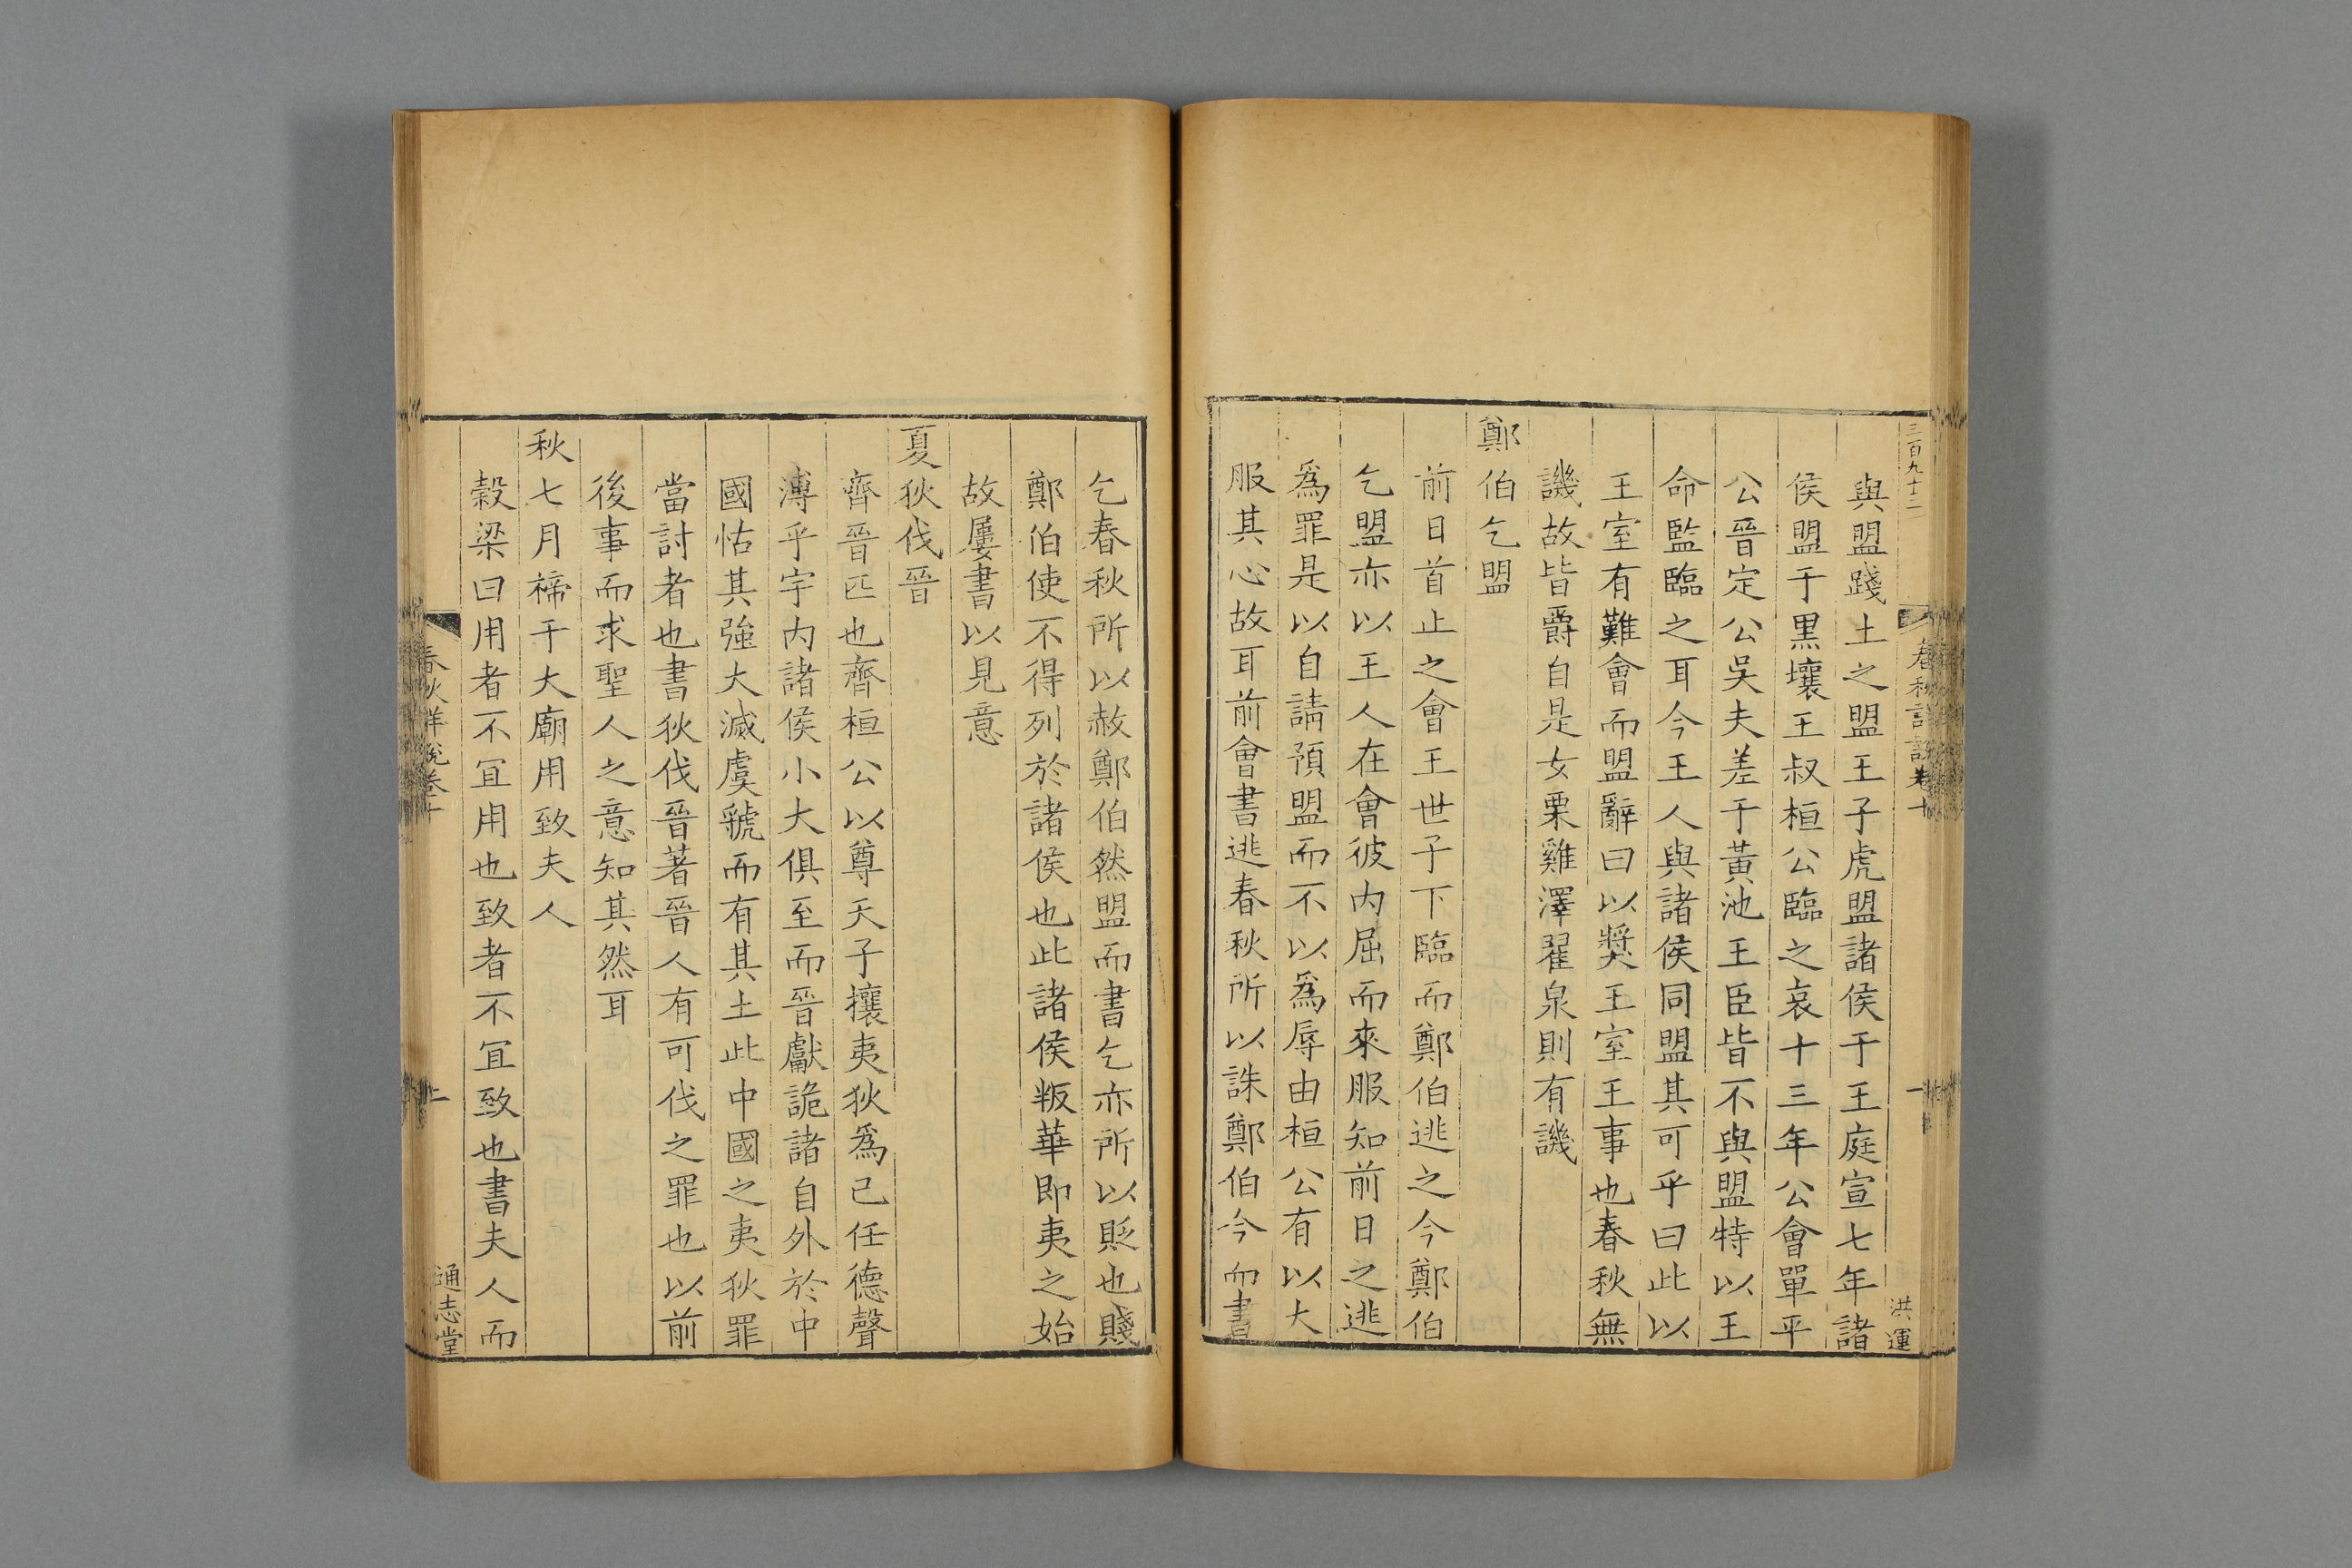 三百九十二
春秋詳說卷十
一
洪運
與盟踐土之盟王子虎盟諸侯于王庭宣七年諸
侯盟于黑壤王叔桓公臨之哀十三年公會單平
公晉定公吳夫差于黃池王臣皆不與盟特以王
命監臨之耳今王人與諸侯同盟其可乎曰此以
王室有難會而盟辭曰以奬王室王事也春秋無
譏故皆爵自是女栗雞澤翟泉則有譏
鄭伯乞盟
前日首止之會王世子下臨而鄭伯逃之今鄭伯
乞盟亦以王人在會彼内屈而來服知前日之逃
爲罪是以自請預盟而不以爲辱由桓公有以大
服其心故耳前會書逃春秋所以誅鄭伯今而書
乞春秋所以赦鄭伯然盟而書乞亦所以貶也賤
鄭伯使不得列於諸侯也此諸侯叛華即夷之始
故屢書以見意
夏狄伐晉
齊晉匹也齊桓公以尊天子攘夷狄爲己任德聲
溥乎宇内諸侯小大俱至而晉獻詭諸自外於中
國怙其強大滅虞虢而有其土此中國之夷狄罪
當討者也書狄伐晉著晉人有可伐之罪也以前
後事而求聖人之意知其然耳
秋七月禘于大廟用致夫人
榖梁曰用者不冝用也致者不冝致也書夫人而
春秋詳說卷十
上
通志堂